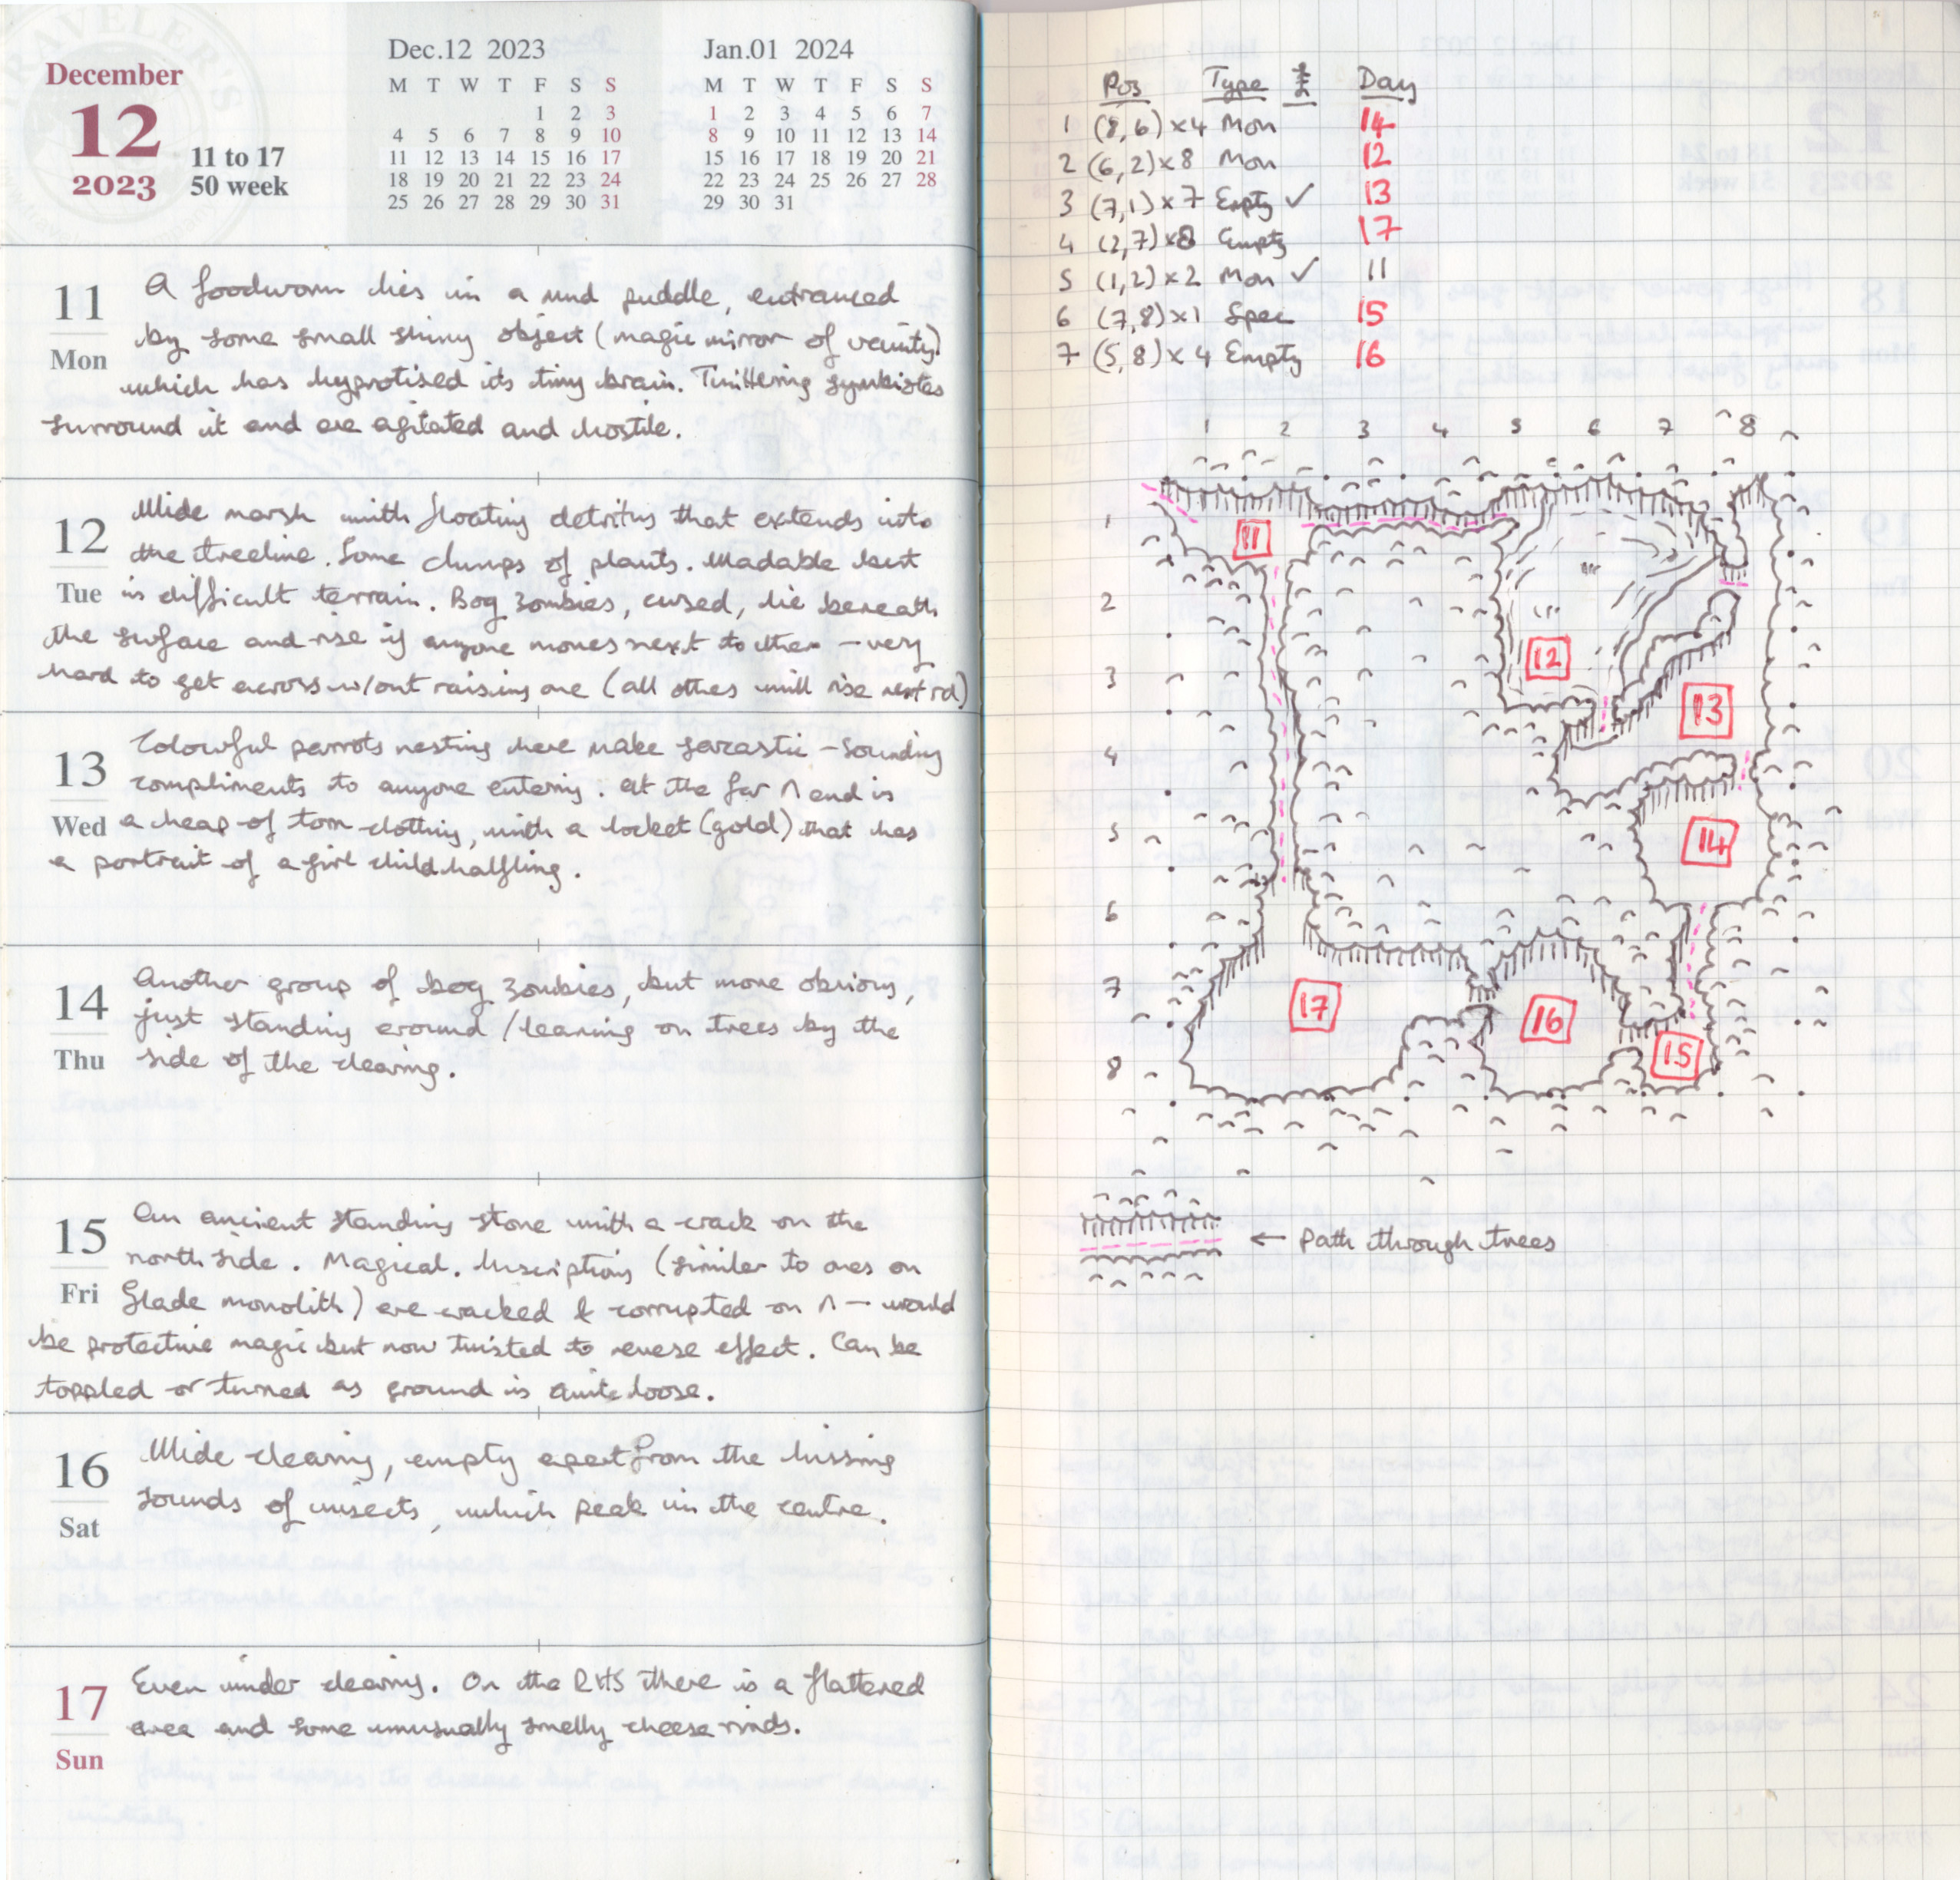 December
12
2023
11 to 17
50 week
Dec.12 2023
M T W T F S S
1 2 3
4 5 6 7 8 9 10
11 12 13 14 15 16 17
18 19 20 21 22 23 24
25 26 27 28 29 30 31
Jan.01 2024
M T W T F S S
1 2 3 4 5 6 7
8 9 10 11 12 13 14
15 16 17 18 19 20 21
22 23 24 25 26 27 28
29 30 31
11
Mon
A floodworm lies in a mud puddle, entranced
by some small shiny object (magic mirror of vanity)
which has hypnotised its tiny brain. Twittering symbiotes
surround it and are agitated and hostile.
12
Tue
Wide marsh with floating detritus that extends into
the treeline. Some clumps of plants. Wadable but
is difficult terrain. Bog zombies, cursed, lie beneath
the surface and rise if anyone moves next to them – very
hard to get across w/out raising one (all others will rise next rd)
13
Wed
Colourful parrots nesting here make sarcastic-sounding
compliments to anyone entering. At the far N end is
a heap of torn clothing, with a locket (gold) that has
a portrait of a girl child halfling.
14
Thu
Another group of bog zombies, but more obvious,
just standing around / leaning on trees by the
side of the clearing.
15
Fri
An ancient standing stone with a crack on the
north side. Magical. Inscriptions (similar to ones on
Glade monolith) are cracked & corrupted on N – would
be protective magic but now twisted to reverse effect. Can be
toppled or turned as ground is quite loose.
16
Sat
Wide clearing, empty apart from the hissing
sounds of insects, which peak in the centre.
17
Sun
Even wider clearing. On the RHS there is a flattened
area and some unusually smelly cheese rinds.
Pos Type Day
1 (8,6) x4 Mon 14
2 (6,2) x8 Mon 12
3 (7,1) x7 Empty ✓ 13
4 (2,7) x8 Empty 17
5 (1,2) x2 Mon ✓ 11
6 (7,8) x1 Spec 15
7 (5,8) x4 Empty 16
1 2 3 4 5 6 7 8
1
11
2
12
3
13
4
5
14
6
7
17
16
15
8
← Path through trees